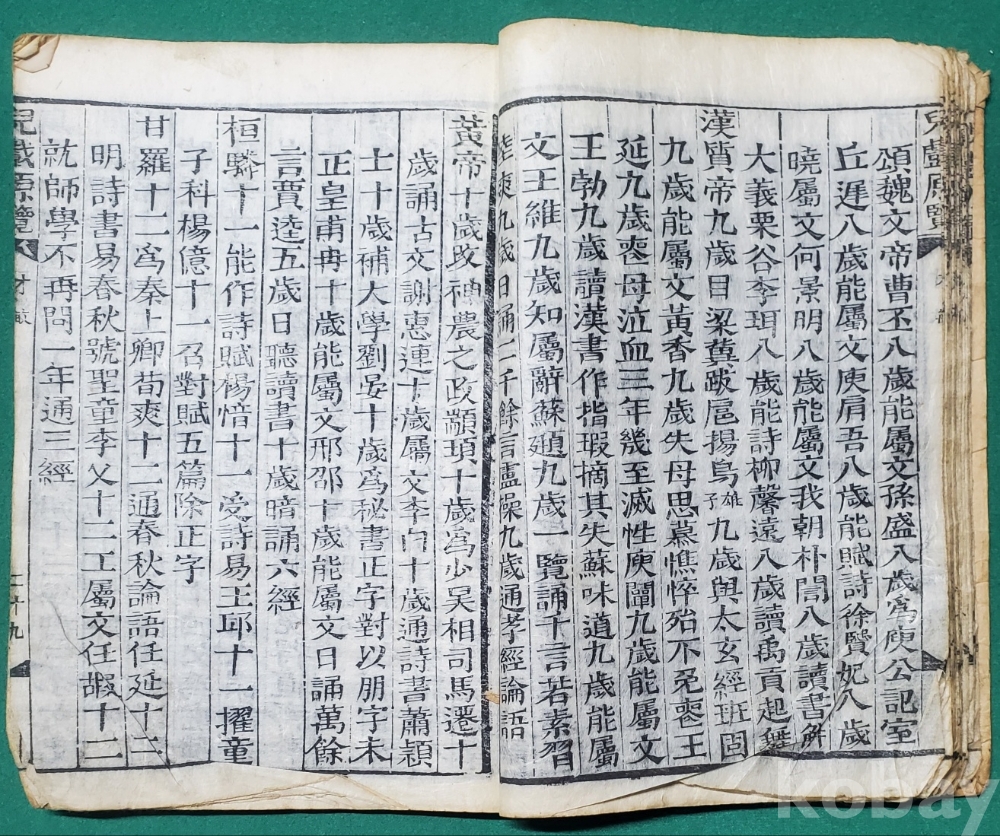 兒戱原覽
頌魏文帝曹丕八歲能屬文孫盛八歲爲庾公記室
丘遲八歲能屬文庾肩吾八歲能賦詩徐賢妃八歲
曉屬文何景明八歲能屬文我朝朴誾八歲讀書解
大義栗谷李珥八歲能詩柳馨遠八歲讀禹貢起舞
漢質帝九歲目梁冀跋扈揚烏雄子九歲與太玄經班固
九歲能屬文黃香九歲失母思慕憔悴殆不免喪王
延九歲喪母泣血三年幾至滅性庾闡九歲能屬文
王勃九歲讀漢書作指瑕摘其失蘇味道九歲能屬
文王維九歲知屬辭蘇頲九歲一覽誦千言若素習
九歲日誦二千餘言盧操九歲通孝經論語
黃帝十歲改神農之政顓頊十歲爲少昊相司馬遷十
歲誦古文謝惠連十歲屬文李白十歲通詩書蕭穎
士十歲補大學劉晏十歲爲秘書正字對以朋字未
正皇甫冉十歲能屬文邢邵十歲能屬文日誦萬餘
言賈逵五歲日聽讀書十歲暗誦六經
桓驎十一能作詩賦楊愔十一受詩易王邱十一擢童
子科楊億十一召對賦五篇除正字
甘羅十二爲秦上卿荀爽十二通春秋論語任延十二
明詩書易春秋號聖童李乂十二工屬文任嘏十二
就師學不再問一年通三經
兒戱原覽 才敏 二十九